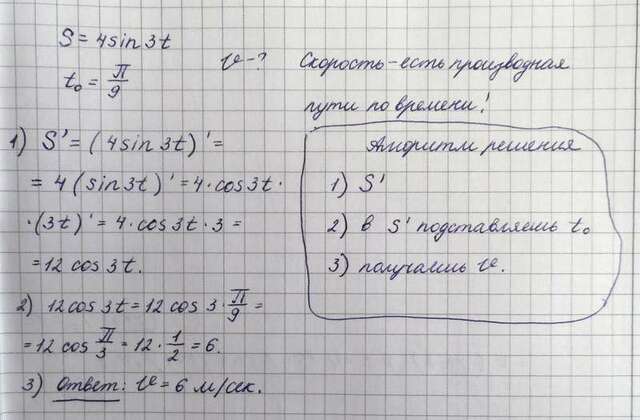 S = 4 sin 3t
t₀ = π/9
v - ?
Скорость - есть производная
пути по времени!
1) S' = (4 sin 3t)' =
= 4 (sin 3t)' = 4 · cos 3t ·
· (3t)' = 4 · cos 3t · 3 =
= 12 cos 3t.
2) 12 cos 3t = 12 cos 3 · π/9 =
= 12 cos π/3 = 12 · 1/2 = 6.
3) Ответ: v = 6 м/сек.
Алгоритм решения
1) S'
2) в S' подставляешь t₀
3) получаешь v.